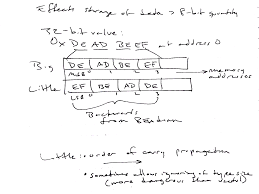 Effects storage of data > 8-bit quantity
32-bit value:
0x DE AD BE EF at address 0
Big DE AD BE EF
ADDR 0 1 2 3
memory addresses
Little EF BE AD DE
ADDR 0 1 2 3
Backwards
from BEndian
Little is order of carry propagation
* sometimes allow ignoring of type size
(more dangerous than useful)